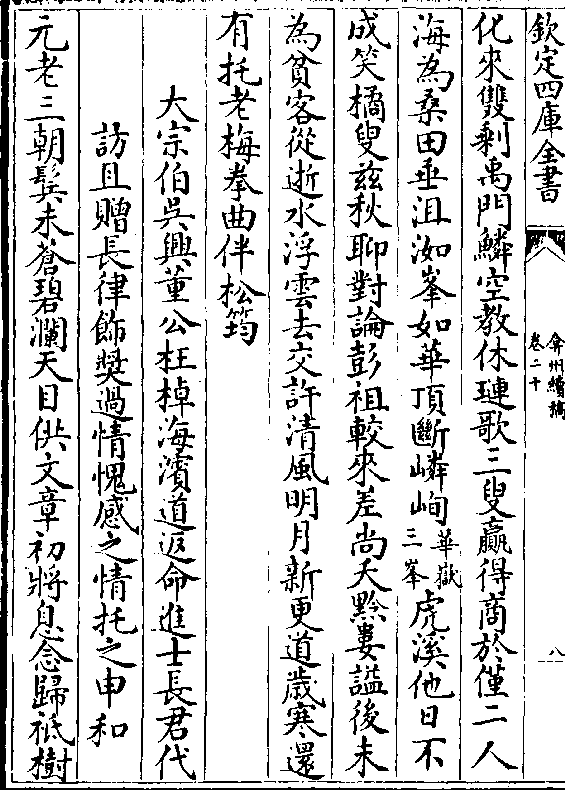 欽定四庫全書
弇州續稿
卷二十
八
化來雙剩禹門鱗空教休璉歌三叟贏得商於僅二人
海為桑田垂沮洳峯如華頂斷嶙峋華嶽三峯虎溪他日不
成笑橘叟兹秋聊對論彭祖較來差尚夭黔婁謚後未
為貧客從逝水浮雲去交許清風明月新更道歲寒還
有托老梅拳曲伴松筠
大宗伯吳興董公枉棹海濱道返命進士長君代
訪且贈長律飾奬過情愧感之情托之申和
元老三朝鬂未蒼碧瀾天目供文章初將息念歸祗樹